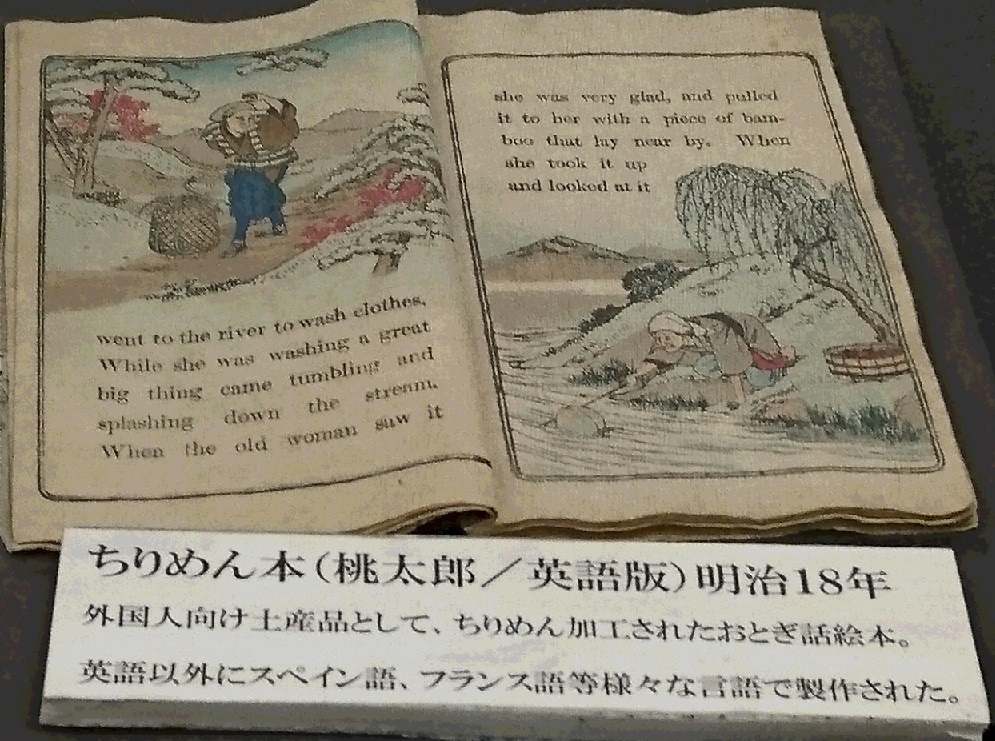 went to the river to wash clothes.
While she was washing a great
big thing came tumbling and
splashing down the stream.
When the old woman saw it
she was very glad, and pulled
it to her with a piece of bam-
boo that lay near by. When
she took it up
and looked at it
ちりめん本(桃太郎/英語版)明治18年
外国人向け土産品として、ちりめん加工されたおとぎ話絵本。
英語以外にスペイン語、フランス語等様々な言語で製作された。